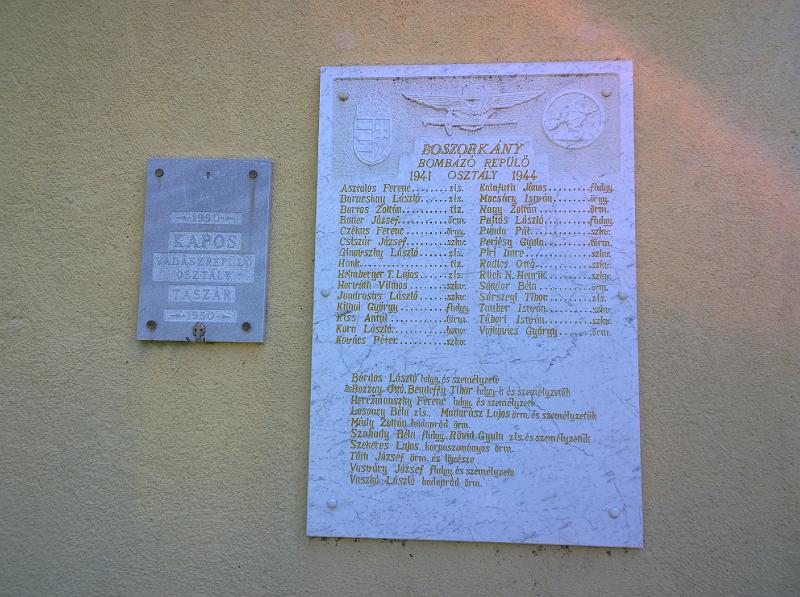 1990
KAPOS
VADÁSZREPÜLŐ
OSZTÁLY
TASZÁR
1950
BOSZORKÁNY
BOMBÁZÓ REPÜLŐ
1941 OSZTÁLY 1944
Asztalos Ferenc........zls.
Baracskay László.......zls.
Bartos Zoltán..........tiz.
Bauer József...........örm.
Czékus Ferenc..........őrgy.
Csiszár József.........szkv.
Ginovszky László.......zls.
Honk...................tiz.
Helmberger T. Lajos....zls.
Horváth Vilmos.........szkv.
Jandrasits László......szkv.
György.................fhdgy.
Kiss Antal.............törm.
Kora László............honv.
Kovács Péter...........szkv.
Kalafuth János.........fhdgy.
Macsáry István.........őrgy.
Nagy Zoltán............örm.
Pajtás László..........fhdgy.
Punda Pál..............szkv.
Perjésy Gyula..........törm.
Piri Imre..............szkv.
Radics Ottó............szkv.
Rück N. Henrik.........szkv.
Sándor Béla............örm.
Sárszegi Tibor.........zls.
Tauber István..........szkv.
Tábori István..........szkv.
Vojkovics György.......örm.
Bárdos László hdgy. és személyzete
Bozzay Ottó, Bendeffy Tibor hdgy-k és személyzetük
Herczmanszky Ferenc hdgy. és személyzete
Losoncy Béla zls., Madarász Lajos örm. és személyzetük
Mády Zoltán hadapród örm.
Szabady Béla fhdgy., Rövid Gyula zls. és személyzetük
Szekeres Lajos karpaszományos örm.
Tóth József örm. és lövésze
Vasváry József fhdgy. és személyzete
Vaszkó László hadapród örm.